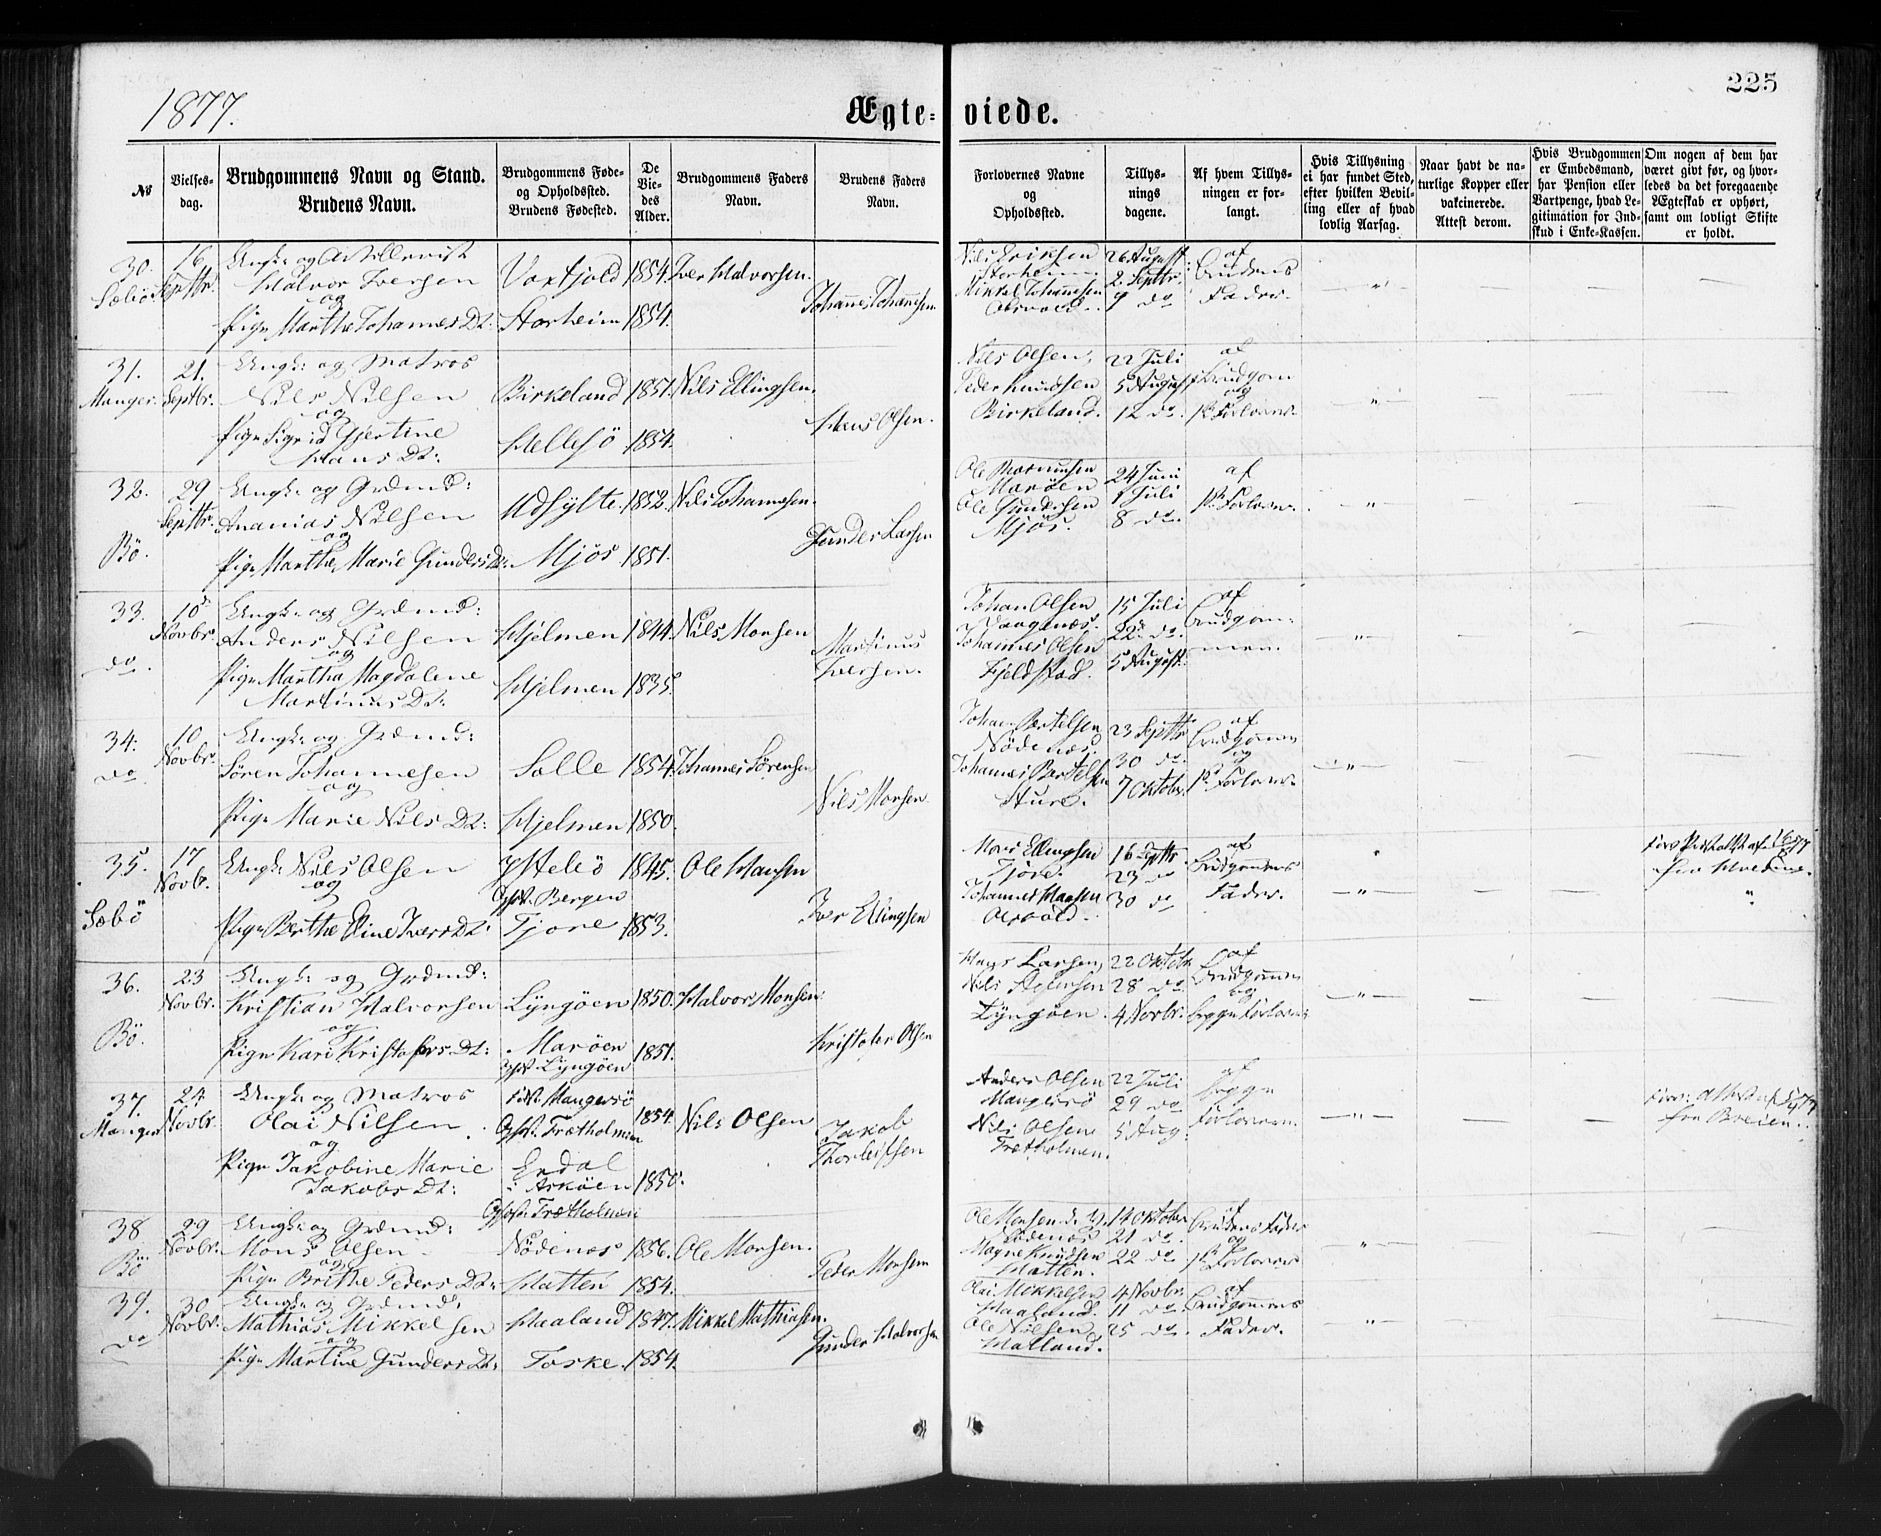 225
1877.
Ægte- viede.
No
Vielses-dag.
Brudgommens Navn og Stand.
Brudens Navn.
Brudgommens Føde- og Opholdssted.
Brudens Fødested.
De Viedes Alder.
Brudgommens Faders Navn.
Brudens Faders Navn.
Forlovernes Navne og Opholdssted.
Tillysnings dagene.
Af hvem Tillysningen er forlangt.
Hvis Tillysning ei har fundet Sted, efter hvilken Bevilling eller af hvad lovlig Aarsag.
Naar havt de naturlige Kopper eller vakcinerede. Attest derom.
Hvis Brudgommen er Embedsmand, har Pension eller Vartpenge, hvad Legitimation for Indskud i Enke-Kassen.
Om nogen af dem har været givt før, og hvorledes da det foregaaende Ægteskab er ophørt, samt om lovligt Skifte er holdt.
30. 16 Septbr. Ungk. og Artillerist
Sæbø Halvor Iversen 1854. Iver Halvorsen.
og
Pige Marthe Johannes Dt. Storheim 1854. Johannes Johannesen
Nils Eriksen Storheim 26 August af Brudens Fader.
Mikkel Johannesen 2 Septbr.
9 do
31. 21. Ungk. og Matros
Manger. Septbr. Nils Nilsen Birkeland 1851. Nils Ellingsen.
og
Pige Sigrid Gjertine Hans Dt: Hellesö 1854. Hans Olsen.
Nils Olsen, 22 Juli af
Peder Knudsen 5 August Brudgom og
Birkeland. 12 do. Forlover.
32. 29 Septbr. Ungk. og Grdmd:
Bö. Ananias Nilsen Udsylte. 1852. Nils Johannesen.
og
Pige Marthe Marie Gunders Dt: Mjös 1851. Gunder Larsen
Ole Rasmussen Maröen 24 Juni af
Ole Gundersen 1 Juli Forlover.
Mjös. 8 do.
33. 10 Novbr. Ungk. og Grdmd:
do. Anders Nilsen Hjelmen 1844. Nils Monsen
og
Pige Martha Magdalene Martinus Dt: Hjelmen 1835. Martinus Iversen.
Johan Olsen 15 Juli af Brudgommen.
Vaagenes. 22 do.
Johannes Olsen 5 August.
Fjeldstad.
34. 10 Novbr. Ungk. og Grdmd:
do. Sören Johannesen Solle 1854. Johannes Sörensen
og
Pige Marie Nils Dt: Hjelmen 1850. Nils Monsen
Johan Bertelsen 23 Septbr af Brudgommen og
Nödenes. 30 do.
Johannes Bertelsen 7 Oktober Forlover.
Sture.
35. 17 Novb. Ungk. Nils Olsen 1845. Ole Hansen
Sæbö og Bergen
Pige Berthe Eline Ivers Dt: Tjore 1853. Iver Ellingsen
Mons Ellingsen 16 Septbr af Brudgommens Fader.
Tjore. 23 do
Johannes Hansen 30 do
36. 23 Novbr. Ungk. og Grdmd:
Bö. Kristian Halvorsen Lyngöen 1850. Halvor Monsen
og
Pige Kari Kristofers Dt: Maröen 1851. Kristofer Olsen
Lyngöen
Hans Larsen 22 Oktobr af Brudgommen og
Nils 28 do
Lyngöen 4 Novbr. begge Forlovere
37. 24 Novbr. Ungk. og Matros
Manger Olai Nilsen Mangersö 1854. Nils Olsen
og Trætholmen
Pige Jakobine Marie Jakobs Dt: Erdal i Asköen 1850. Jakob Thorleifsen
Trætholmen
Anders Olsen 22 Juli af begge Forlovere.
Mangersö 29 do
Nils Olsen 5 Aug:
Trætholmen.
38 29 Novbr. Ungk. og Grdmd:
Bö Mons Olsen Nödenes 1856. Ole Monsen.
og
Pige Brithe Peders Dt: Hatten 1854. Peder Monsen
Ole Monsen 14 Oktober af Brudens Fader og
Nödenes 21 do.
Magne Knudsen 22 do Forlover
Hatten.
39. 30 Novbr. Ungk. og Grdmd:
do Mathias Mikkelsen Haaland 1847. Mikkel Mathiasen.
og
Pige Martine Gunders Dt: Toske. 1854. Gunder Halvorsen
Olai Mikkelsen 4 Novbr. af Brudgommens Fader.
Haaland. 11 do.
Ole Nilsen 25 do.
Hatland.